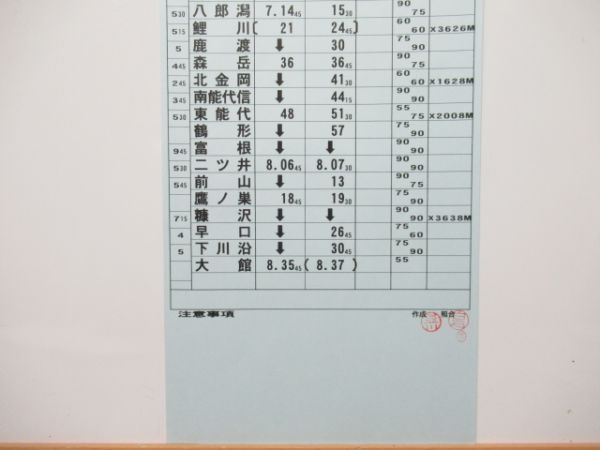 530 八郎潟 7.14 45 15 30 90 75
515 鯉川 [ 21 24 45 ] 60 60 X3626M
5 鹿渡 ⬇ 30 75 90
445 森岳 36 36 45 90 75
245 北金岡 ⬇ 41 30 60 60 X1628M
345 南能代信 ⬇ 44 15 75 90
530 東能代 48 51 30 55 75 X2008M
鶴形 ⬇ 57 75 90
945 富根 ⬇ ⬇ 90 90
530 二ツ井 8.06 45 8.07 30 90 90
545 前山 ⬇ 13 90 75
鷹ノ巣 18 45 19 30 75 90
715 糠沢 ⬇ ⬇ 90 90 X3638M
4 早口 ⬇ 26 45 75 60
5 下川沿 ⬇ 30 45 75 90
大館 8.35 45 ( 8.37 ) 55
注意事項 作成 照合